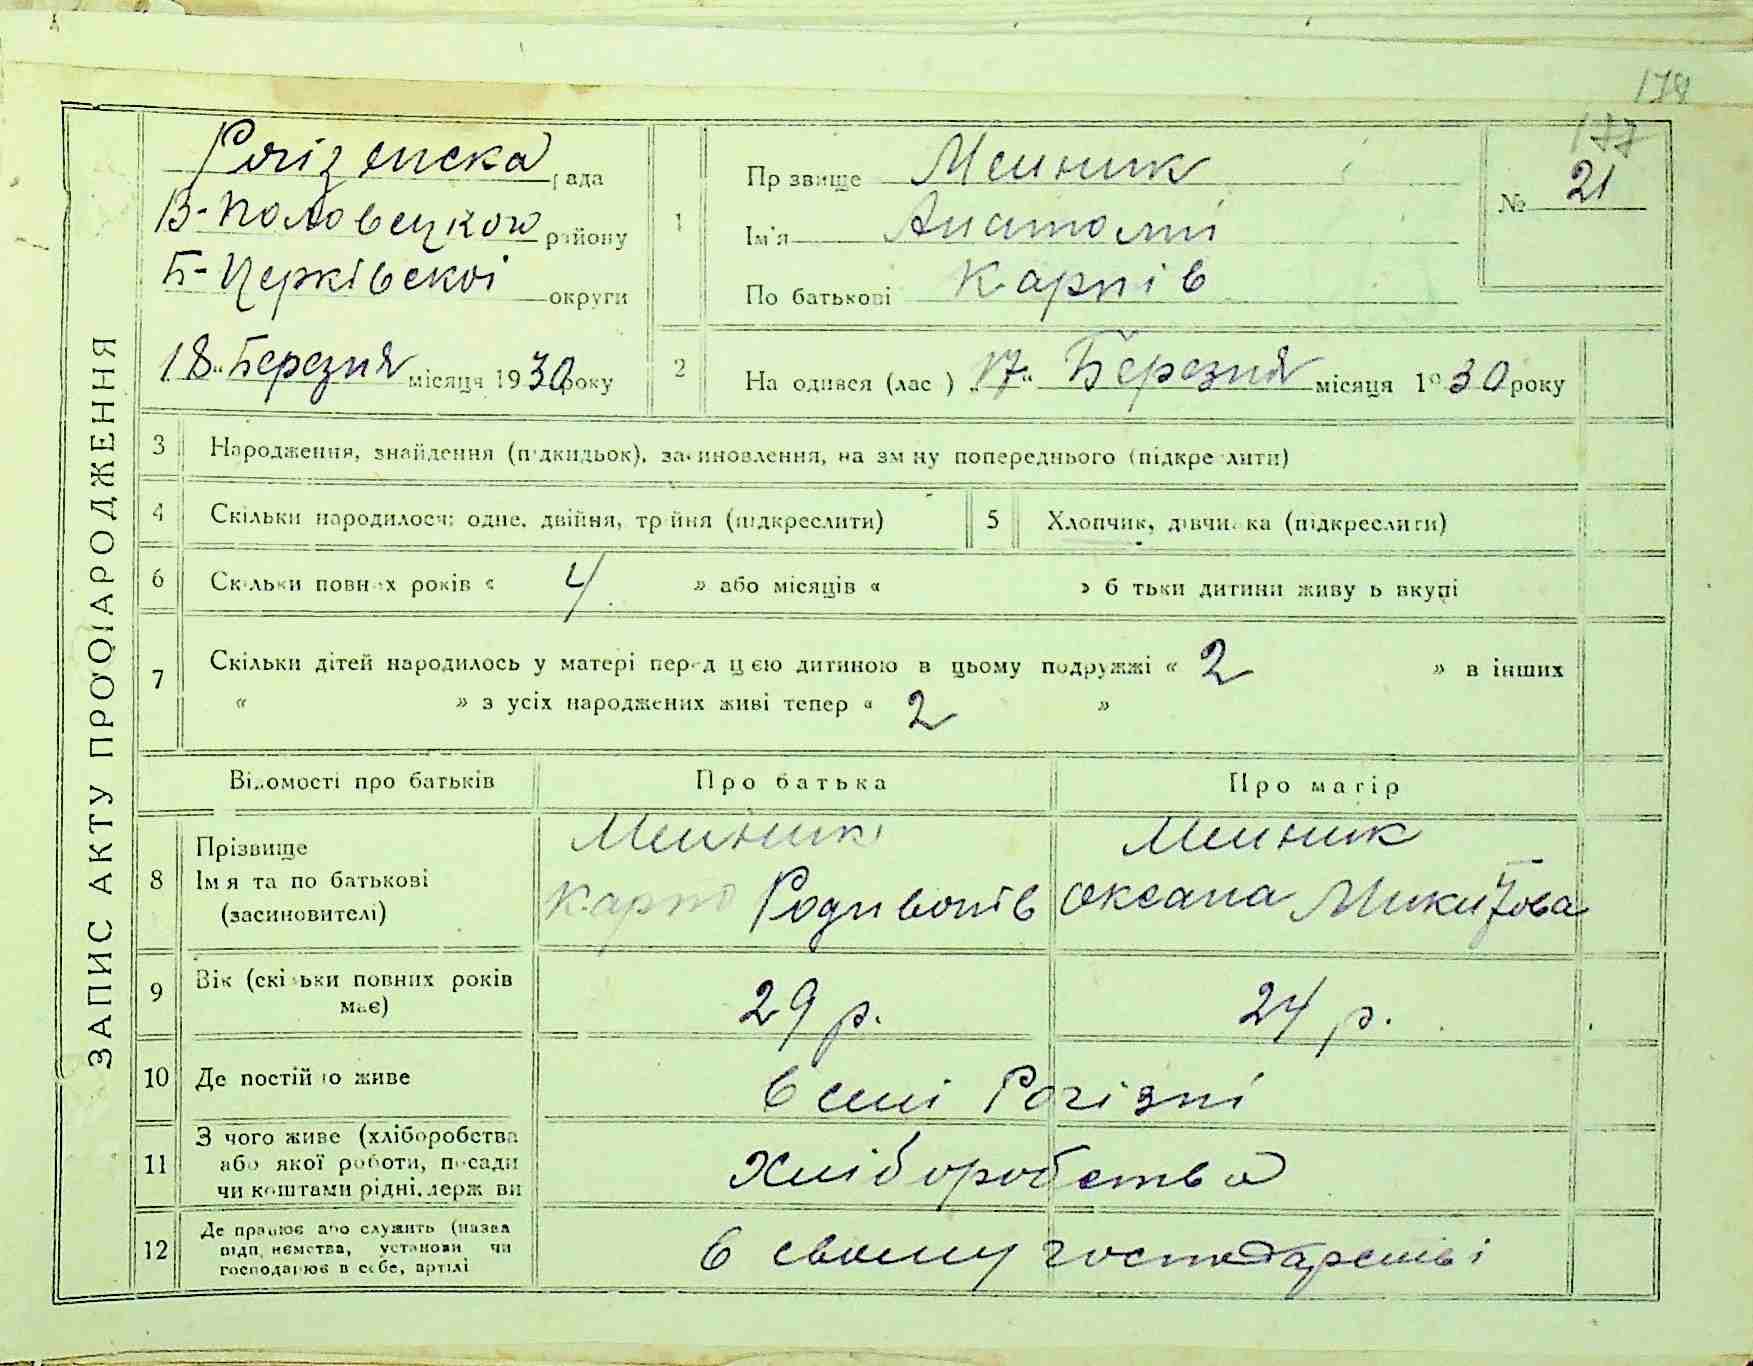 178
177
ЗАПИС АКТУ ПРО НАРОДЖЕННЯ
Рогізянська рада
В-Половецького району
Б-Церківскої округи
18 „ Березня місяця 1930 року
1
Прізвище Мельник
Ім'я Анатолій
По батькові Карпів
№ 21
2
Народився (лась) 17 „ Березня місяця 1930 року
3 Народження, знайдення (підкидьок), засиновлення, на зміну попереднього (підкреслити)
4 Скільки народилося: одне, двійня, трійня (підкреслити)
5 Хлопчик, дівчинка (підкреслити)
6 Скільки повних років « 4 » або місяців « » батьки дитини живуть вкупі
7 Скільки дітей народилось у матері перед цією дитиною в цьому подружжі « 2 » в інших
« » з усіх народжених живі тепер « 2 »
Відомості про батьків Про батька Про матір
8 Прізвище
Ім'я та по батькові
(засиновителі)
Мельник
Карпо Родивонів
Мельник
Оксана Микитова
9 Вік (скільки повних років
має)
29 р. 24 р.
10 Де постійно живе в селі Рогізні
11 З чого живе (хліборобства
або якої роботи, посади
чи коштами рідні, держави
Хліборобства
12 Де працює або служить (назва
підприємства, установи чи
господарює в себе, артілі
в своєму господарстві